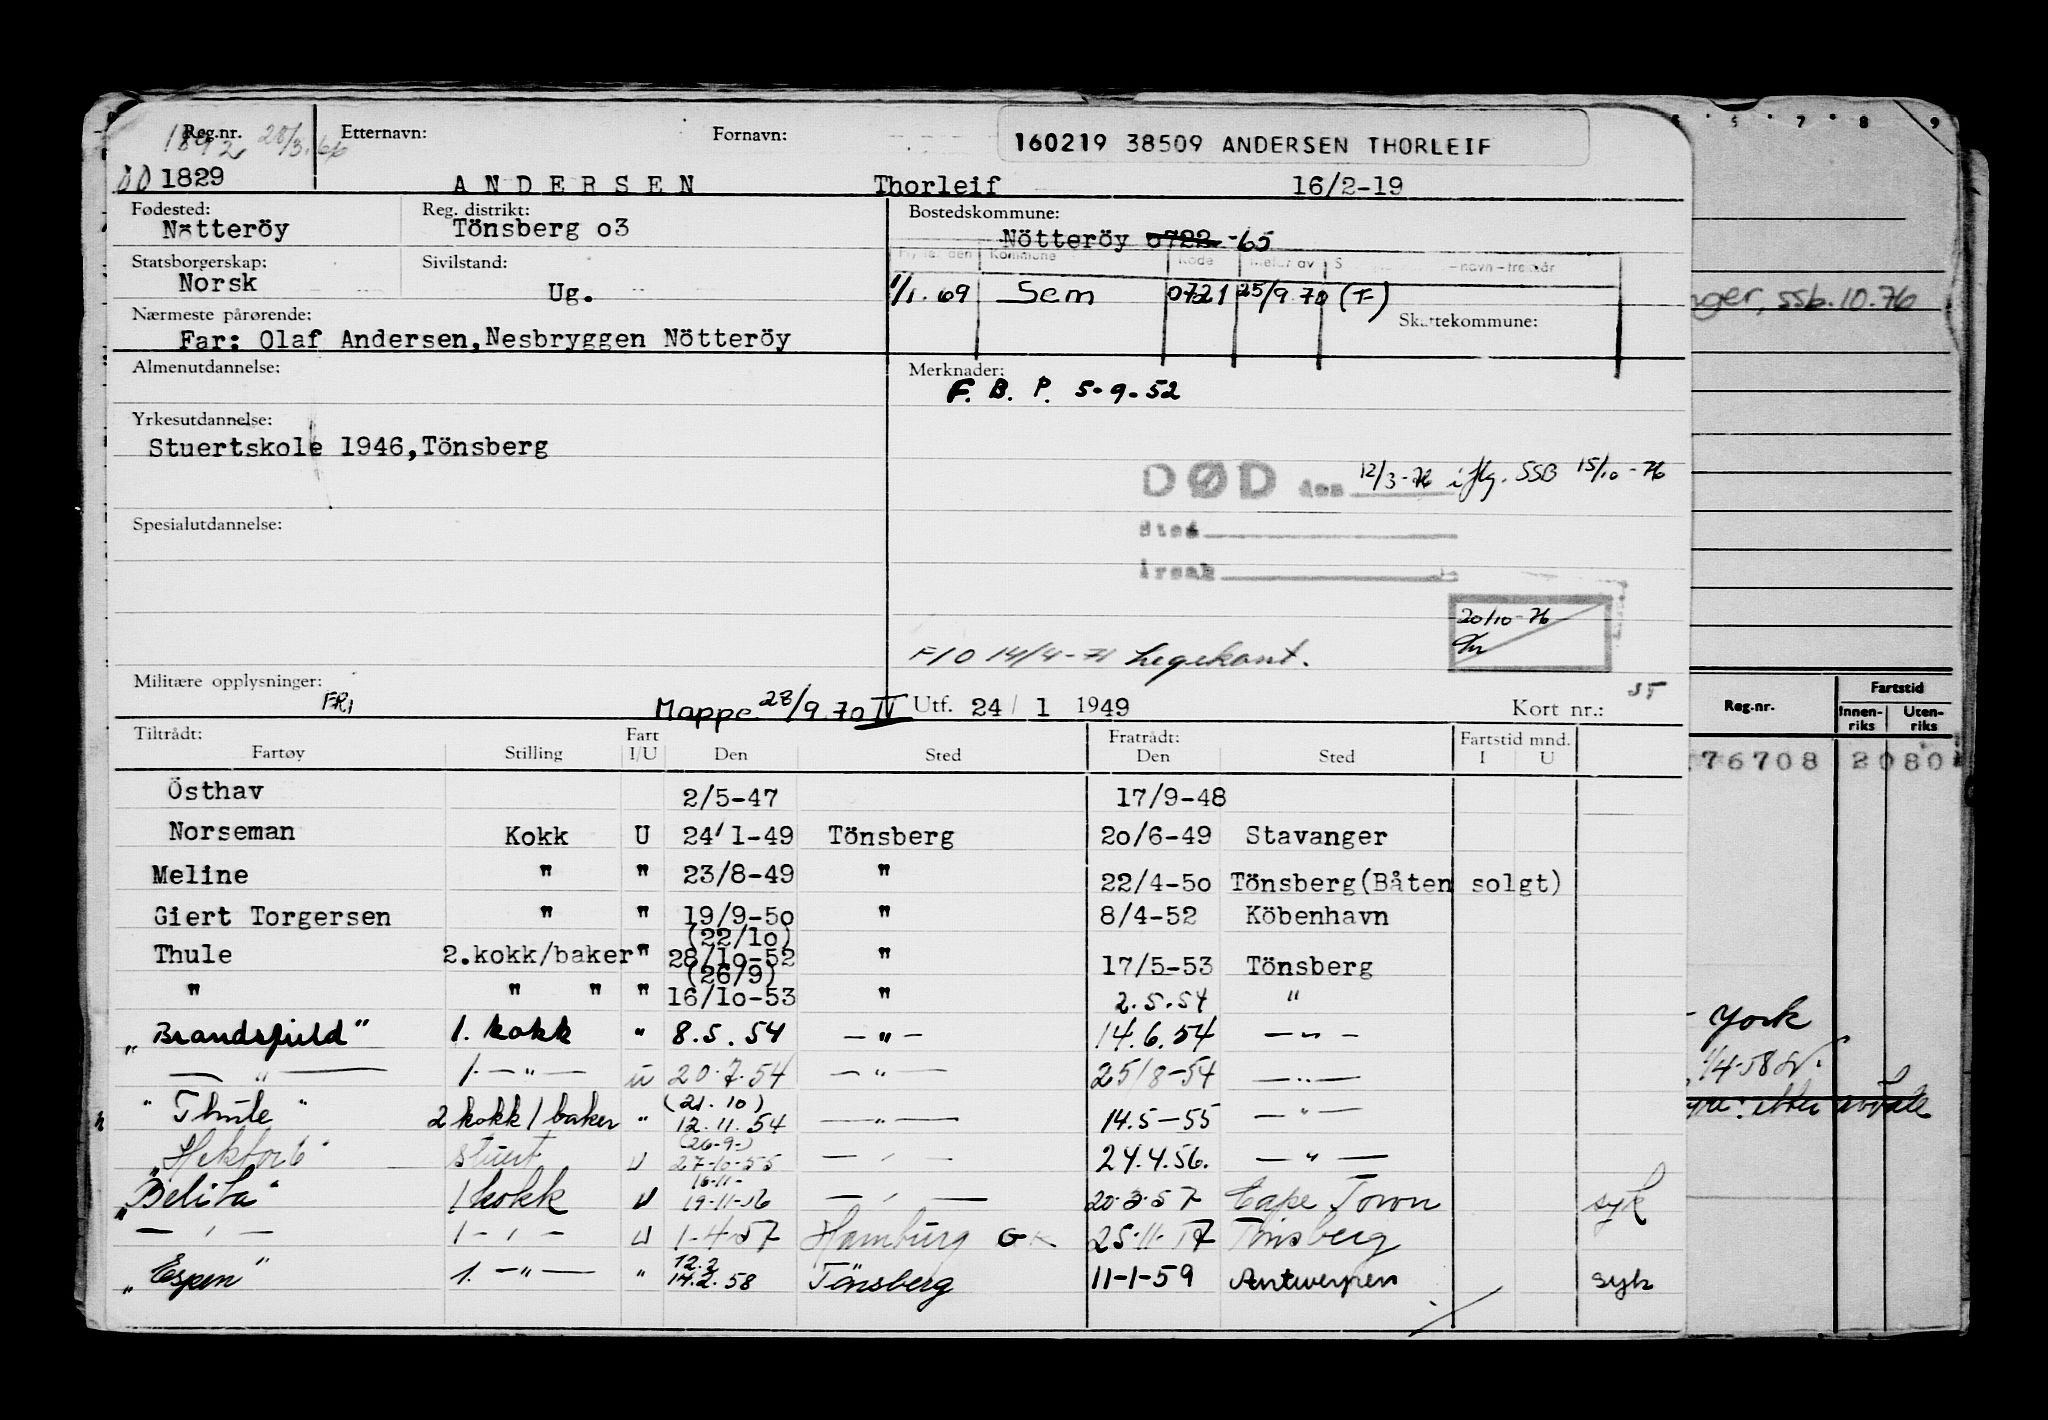 Reg.nr. Etternavn: Fornavn: 160219 38509 ANDERSEN THORLEIF
1892 28/3.66
00 1829 A N D E R S E N Thorleif 16/2-19
Fødested: Reg. distrikt: Bostedskommune:
Nötteröy Tönsberg o3 Nötteröy 0722 -65
Statsborgerskap: Sivilstand: Kommune Kode
Norsk Ug. 1/1.69 Sem 0721 25/9.70 (F)
Nærmeste pårørende: Skattekommune:
Far: Olaf Andersen,Nesbryggen Nötteröy
Almenutdannelse: Merknader:
F. B. P. 5-9-52
Yrkesutdannelse:
Stuertskole 1946,Tönsberg
DØD den 12/3-76 iflg. SSB 15/10-76
Spesialutdannelse: Sted
Årsak
20/10-76
F/O 14/4-71 Legekont.
Militære opplysninger: FRI Mappe 28/9.70 IV Utf. 24/ 1 1949 Kort nr.:
Tiltrådt: Fart Fratrådt: Fartstid mnd.
Fartøy Stilling I/U Den Sted Den Sted I U
Östhav 2/5-47 17/9-48
Norseman Kokk U 24/1-49 Tönsberg 20/6-49 Stavanger
Meline " " 23/8-49 " 22/4-50 Tönsberg(Båten solgt)
Giert Torgersen " " 19/9-5o " 8/4-52 Köbenhavn
(22/1o)
Thule 2.kokk/baker " 28/1o-52 " 17/5-53 Tönsberg
(26/9)
" " " " 16/1o-53 " 2.5.54 "
"Brandsfield" 1. kokk " 8.5.54 — " — 14.6.54 — " —
— " — 1. — " — U 20.7.54 — " — 25/8-54 — " —
(21.10)
"Thule" 2 kokk/baker " 12.11.54 — " — 14.5-55 — " —
(26-9-)
"Hektor 6" stuert U 27-10-55 — " — 24.4.56. — " —
16-11-
"Belita" 1 kokk U 19-11-56 — " — 20-3-57 Cape Town syk
— " — 1 — " — U 1-4-57 Hamburg GK 25-11-57 Tönsberg
12.2
"Espen" 1. — " — " 14.2.58 Tönsberg 11-1-59 Antwerpen syk
5 7 8 9
nger, ssb.10.76
Reg.nr. Fartstid
Innen-riks Uten-riks
76708 2080
York
1/4-58